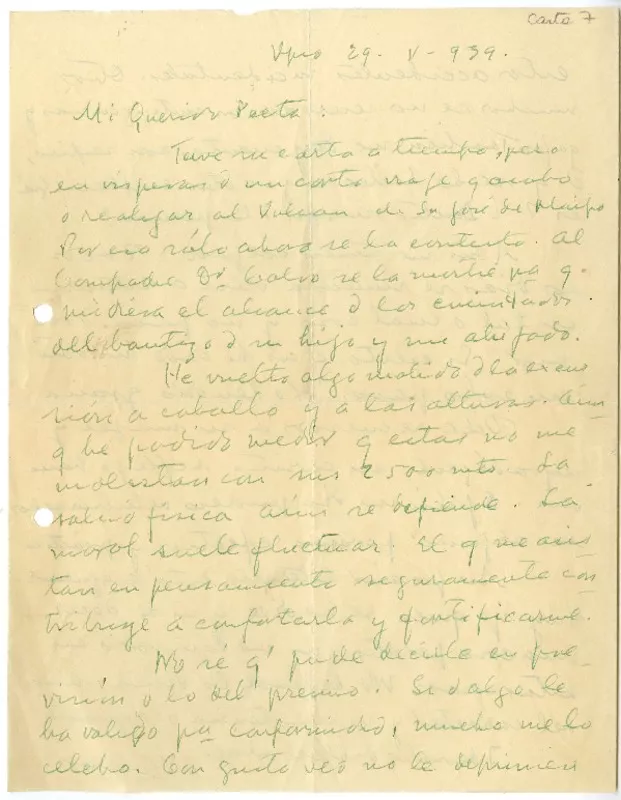 Carta 7
Vpso 29. V - 939.
Mi Querido Poeta.
Tuve su carta a tiempo, pero
en vísperas d un corto viaje q acabo
d realizar al Volcan de Sn José de Maipo
Por eso sólo ahora se la contesto. Al
Compadre Dr Calvo se la mostré pa q.
midiera el alcance d los
del bautizo d su hijo y mi ahijado.
He vuelto algo molido d la excur
sión a caballo y a las alturas. Aun
q he podido medir q estas no me
molestan con sus 2500 mts. La
salud física aún se defiende. La
moral suele fluctuar. El q me asis
tan en pensamiento seguramente con
tribuye a confortarla y fortificarme.
No sé q' pude decirle en pre
visión d lo del premio. Si d algo le
ha valido pa conformidad, mucho me lo
celebro. Con gusto veo no le deprimen